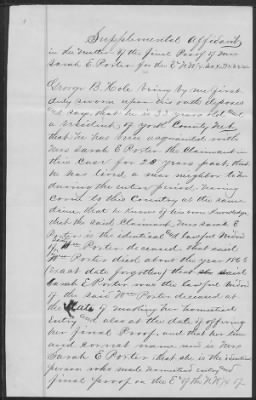 Supplemental Affidavit
in the matter of the final Proof of Mrs
Sarah E Porter for the E½ NW¼
George B. Hole being by me first
duly sworn upon his oath deposes
and says that he is 33 years old and
a resident of York County Neb
that he has been acquainted with
Mrs Sarah E Porter the Claimant in
this case for 20 years past, that
he has lived a near neighbor to her
during the entire period. Having
come to this Country at the same
time, that he knows of his own knowledge
that the said Claimant Mrs Sarah E
Porter is the identical and lawful widow
of Wm Porter deceased that said
Wm Porter died about the year 186
(exact date forgotten) that the said
Sarah E Porter was the lawful widow
of the said Wm Porter deceased at
the date of making her homestead
entry and also at the date of offering
her final Proof, and that her true
and correct name is Mrs
Sarah E Porter that she is the identical
person who made homestead entry and
final proof on the E½ of the NW¼